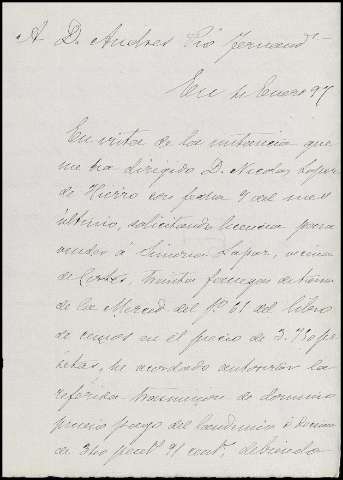 A D. Andres Pió Fernand
En 4 Enero 97
En vista de la instancia que
me ha dirigido D. Nicolas Lopez
de Hierro con fecha 7 del mes
último, solicitando licencia para
vender á Lopez, vecina
de treinta fanegas de tierra
de la Merced del fº 61 del libro
de censos en el precio de 3.
pesetas, he acordado autorizar la
referida trasmision de dominio
previo pago del laudemio
de pesetas 91 cent. debiendo